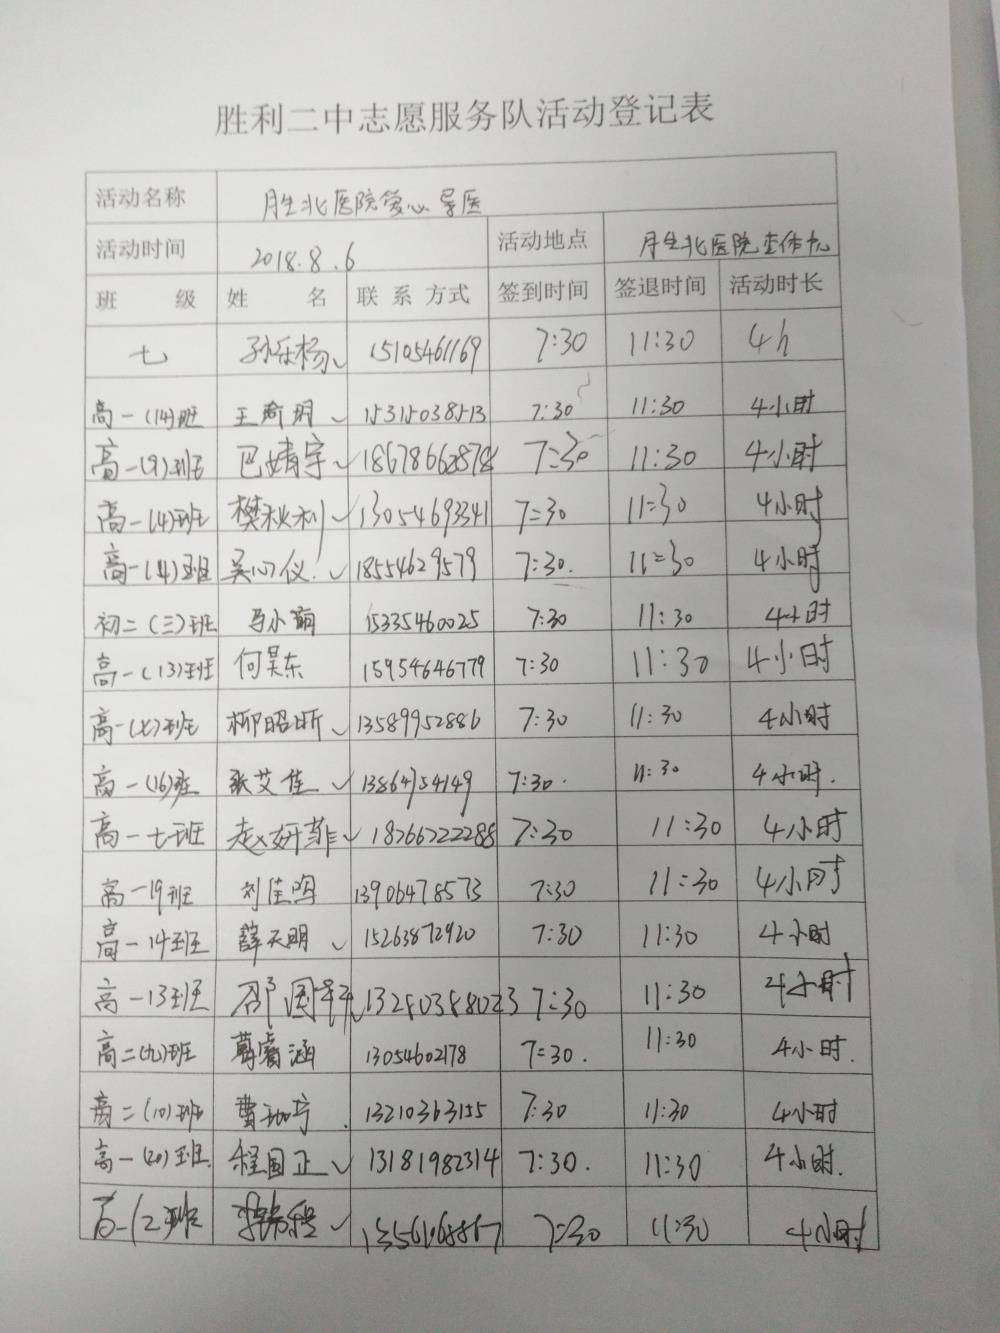 胜利二中志愿服务队活动登记表
活动名称 胜北医院爱心导医
活动时间 2018.8.6 活动地点 胜北医院查体九
班 级 姓 名 联系方式 签到时间 签退时间 活动时长
七 孙乐杨 15105461169 7:30 11:30 4h
高一(14)班 王新玥 15315038513 7:30 11:30 4小时
高一(9)班 巴婧宇 18678662878 7:30 11:30 4小时
高一(4)班 樊秋利 13054693341 7:30 11:30 4小时
高一(4)班 吴心仪 18554629579 7:30. 11:30 4小时
初二(三)班 马小萌 15335460025 7:30 11:30 4小时
高一(13)班 何昊东 15954646779 7:30 11:30 4小时
高一(七)班 柳昭昕 13589952886 7:30 11:30 4小时
高一(16)班 张艾佳 13864754149 7:30. 11:30 4小时.
高一七班 赵妍菲 18266222288 7:30 11:30 4小时
高一19班 刘佳鸣 13906478573 7:30 11:30 4小时
高一14班 薛天明 15263872920 7:30 11:30 4小时
高一13班 邵国 13280388023 7:30 11:30 4小时
高二(九)班 葛睿涵 13054602178 7:30. 11:30 4小时.
高二(10)班 费 宁 13210363155 7:30 11:30 4小时
高一(20)班. 程国正 13181982314 7:30. 11:30 4小时.
高一12班 7:30 11:30 4小时